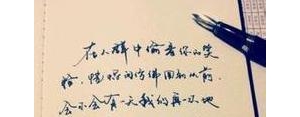 在人群中偷看你的笑
脸,恍惚的仿佛回到从前
会不会有一天我们再一次地